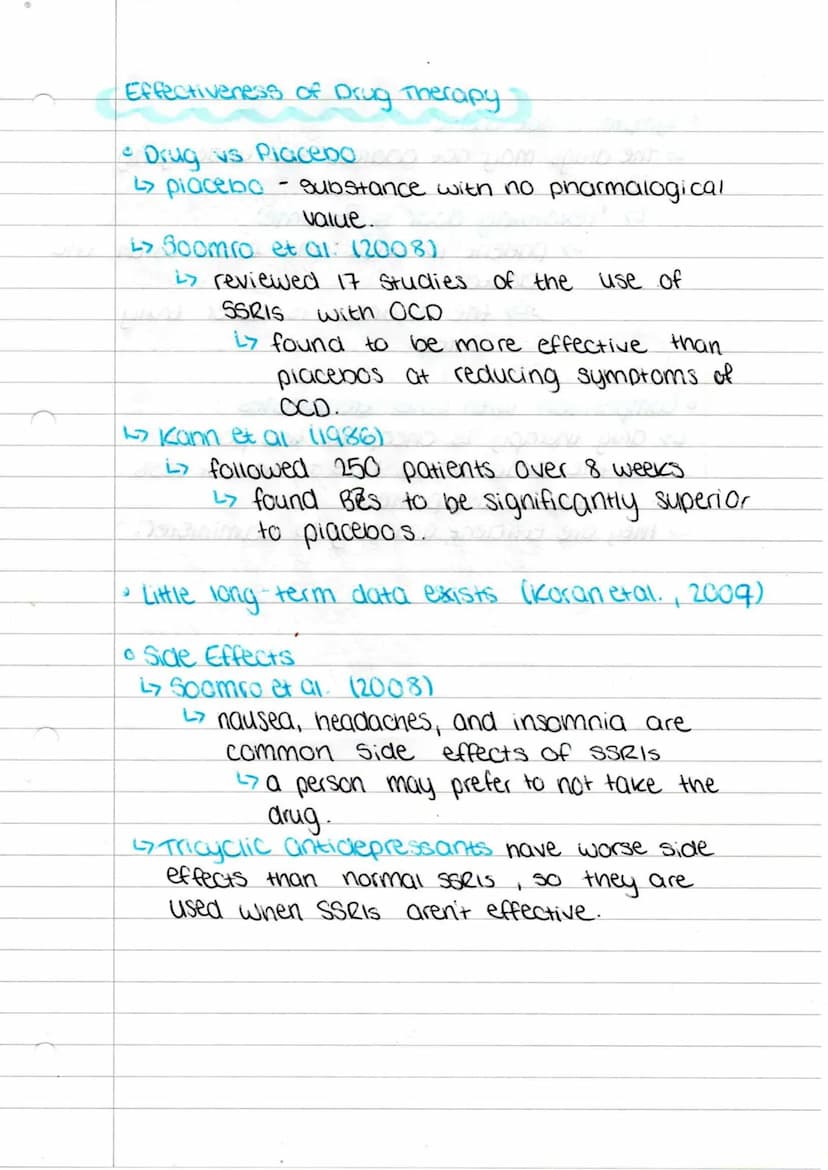 Effectiveness of Drug Therapy
• Drug vs Placebo
↳ placebo - substance with no pharmalogical
value.
↳ Soomro et al. (2008)
↳ reviewed 17 studies of the use of
SSRIs with OCD
↳ found to be more effective than
placebos at reducing symptoms of
OCD.
↳ Kahn et al (1986)
↳ followed 250 patients over 8 weeks
↳ found BZs to be significantly superior
to placebos.
• Little long-term data exists (Koran et al., 2009)
• Side Effects
↳ Soomro et al. (2008)
↳ nausea, headaches, and insomnia are
common side effects of SSRIs
↳ a person may prefer to not take the
drug.
↳ Tricyclic antidepressants have worse side
effects than normal SSRIs, so they are
used when SSRIs aren't effective.